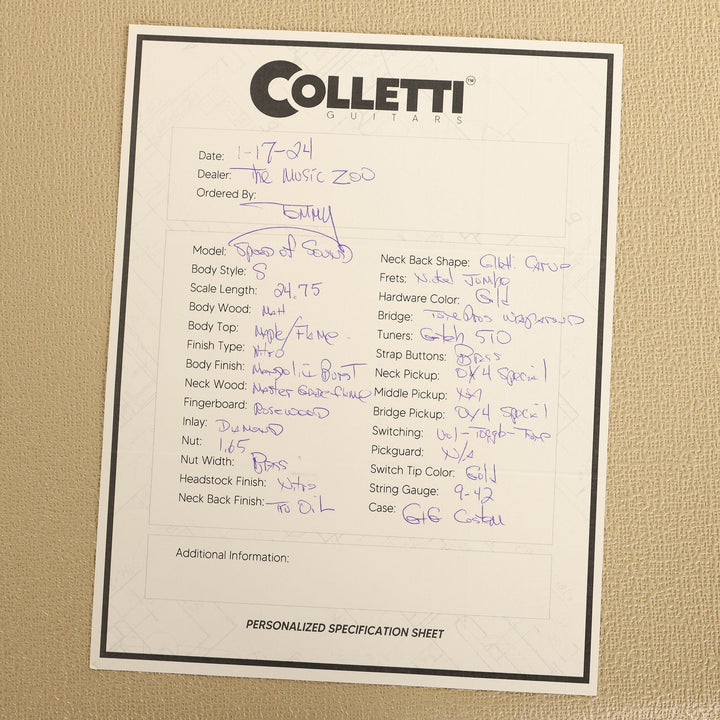 COLLETTI™
GUITARS
Date: 1-17-24
Dealer: The Music Zoo
Ordered By: Tommy
Model: Speed of Sound
Body Style: S
Scale Length: 24.75
Body Wood:
Body Top: Maple/Flame
Finish Type: Nitro
Body Finish: Mandolin Burst
Neck Wood: Master Grade Flame
Fingerboard: Rosewood
Inlay: Diamond
Nut: 1.65
Nut Width: Brass
Headstock Finish: Nitro
Neck Back Finish: Tru Oil
Neck Back Shape:
Frets: Nickel Jumbo
Hardware Color: Gold
Bridge: TonePros Wraparound
Tuners: Gotoh 510
Strap Buttons: Brass
Neck Pickup: OX4 Special
Middle Pickup:
Bridge Pickup: OX4 Special
Switching: Vol-Toggle-Tone
Pickguard: N/A
Switch Tip Color: Gold
String Gauge: 9-42
Case: G+G Custom
Additional Information:
PERSONALIZED SPECIFICATION SHEET